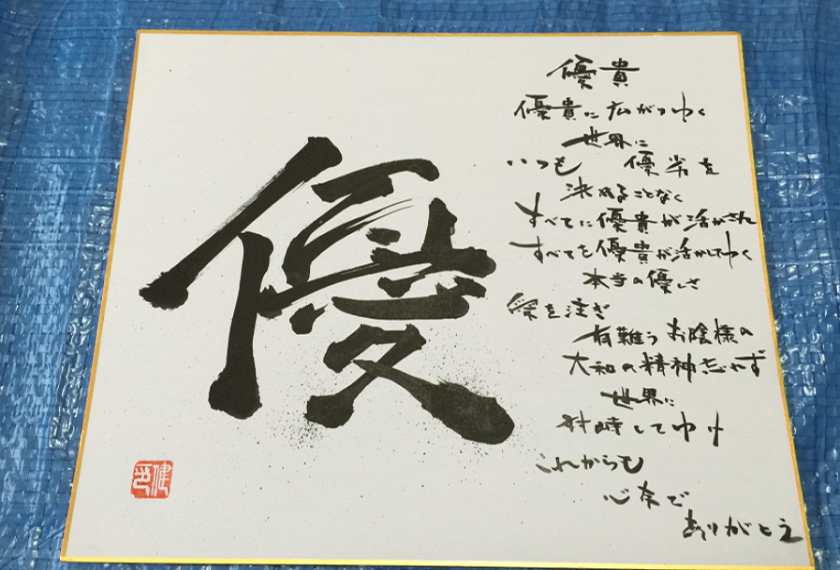 優
優貴
優貴に広がりゆく
世界に
いつも 優劣を
決めることなく
すべてに優貴が活かされ
すべてを優貴が活かしてゆく
本当の優しさ
を注ぎ
有難う お陰様の
大和の精神忘れず
世界に
対峙してゆけ
これからも
で
ありがとう